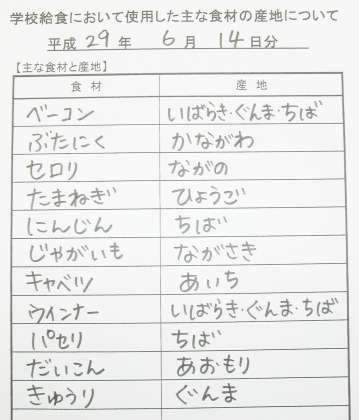 学校給食において使用した主な食材の産地について
平成 29 年 6 月 14 日分
【主な食材と産地】
食材 産地
ベーコン いばらき・ぐんま・ちば
ぶたにく かながわ
セロリ ながの
たまねぎ ひょうご
にんじん ちば
じゃがいも ながさき
キャベツ あいち
ウインナー いばらき・ぐんま・ちば
パセリ ちば
だいこん あおもり
きゅうり ぐんま